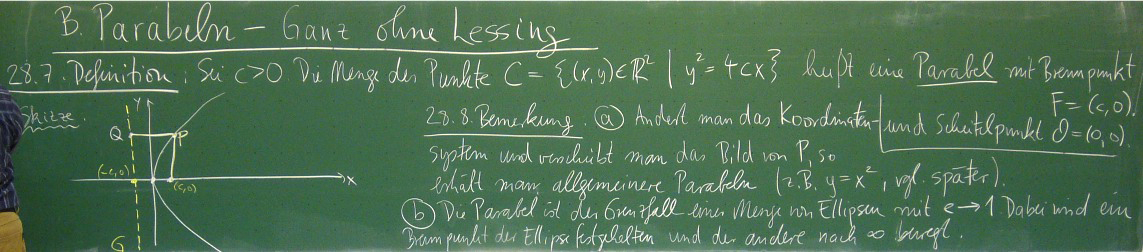 B. Parabeln – Ganz ohne Lessing
28.7. Definition: Sei c>0. Die Menge der Punkte C = {(x,y)∈ℝ² | y² = 4cx} heißt eine Parabel mit Brennpunkt
F=(c,0).
und Scheitelpunkt O=(0,0).
Skizze.
y
Q
P
(-c,0)
(c,0)
x
G
28.8. Bemerkung. (a) Ändert man das Koordinaten-
system und verschiebt man das Bild von P, so
erhält man allgemeinere Parabeln (z.B. y=x², vgl. später).
(b) Die Parabel ist der Grenzfall einer Menge von Ellipsen mit e→1. Dabei wird ein
Brennpunkt der Ellipse festgehalten und der andere nach ∞ bewegt.